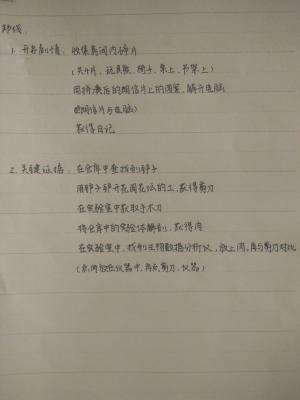 1. 开启剧情: 收集房间内碎片
(共4片, 玩具熊、椅子、桌上、书架上)
用拼凑后的明信片上的图案, 解开电脑
(明信片与电脑)
获得日记
2. 关键证据: 在仓库中查找到铲子
用铲子铲开花园花坛的土, 获得剪刀
在实验室中获取手术刀
将仓库中的实验体解剖, 获得肉
在实验室中, 找到生物数据分析仪, 放上肉, 再与剪刀对比
(点肉放在仪器中, 再点剪刀、仪器)